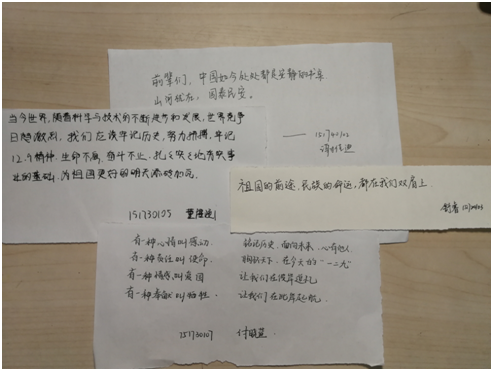 前辈们，中国如今处处都是安静的书桌
山河犹在，国泰民安。
151740103
当今世界，随着科学与技术的不断进步和发展，世界竞争
日趋激烈，我们应该牢记历史，努力拼搏，牢记
12.9精神，生命不息，奋斗不止，扎扎实实地夯实事
业的基础，为祖国更好的明天添砖加瓦。
151730105
祖国的前途、民族的命运，都在我们双肩上
有一种心情叫感动
有一种责任叫使命
有一种情感叫爱国
有一种奉献叫牺牲
铭记历史，面向未来，心有他人
胸怀天下，在今天的“一二·九”
让我们在彼岸巡礼
让我们在此岸起航
151730107